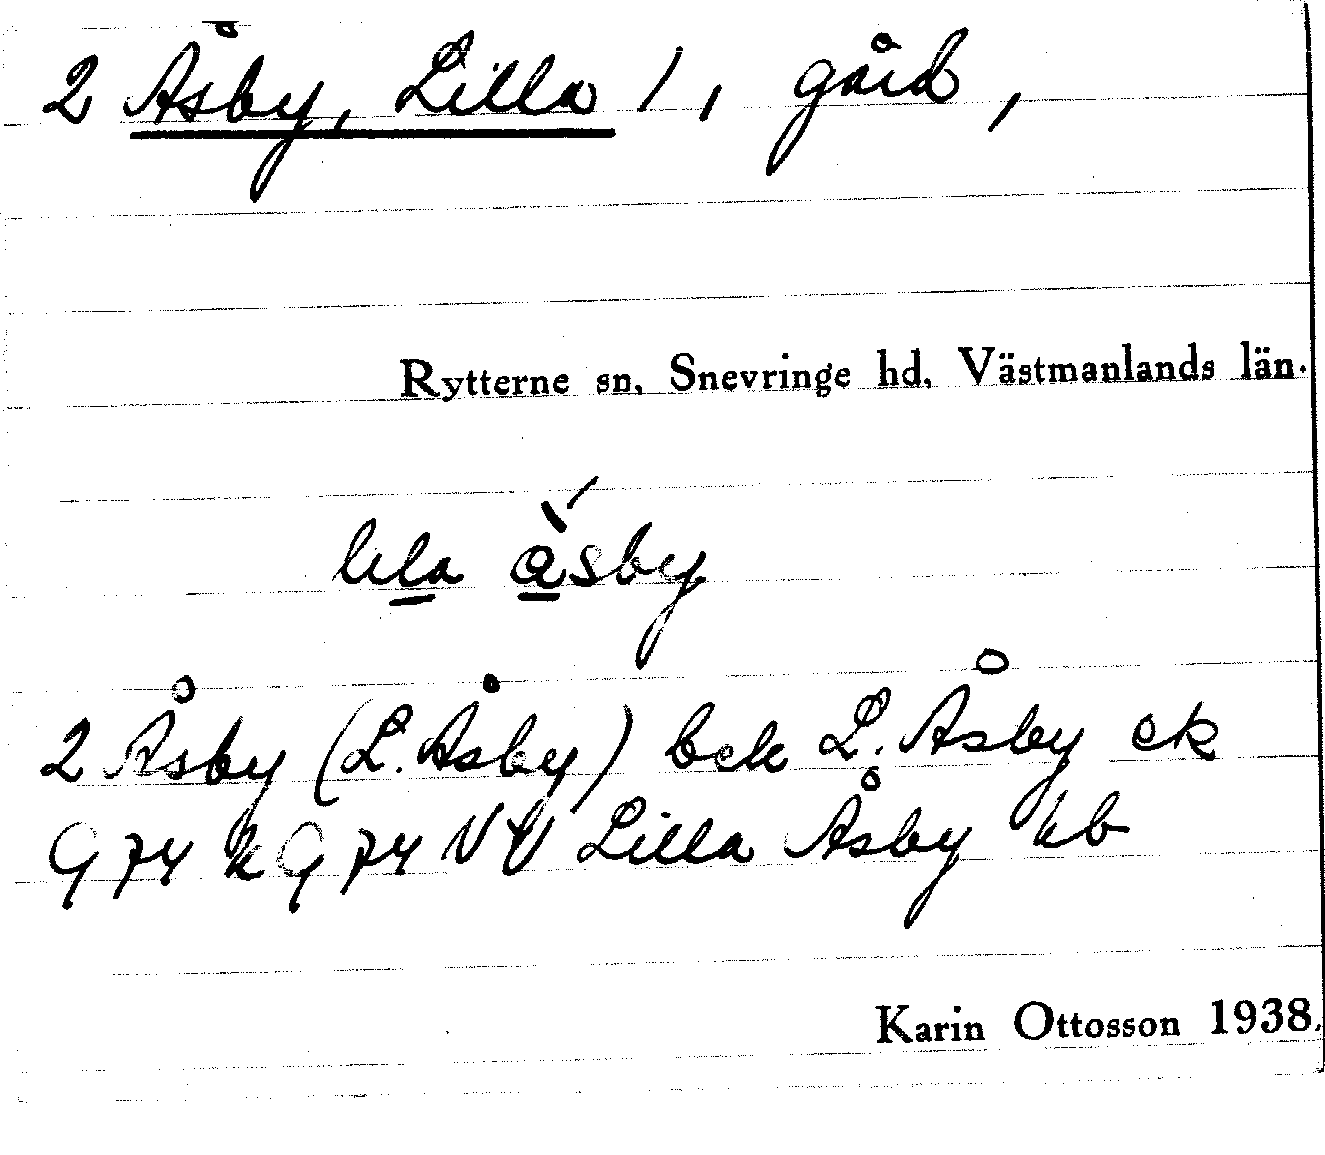 2 Åsby, Lilla /, gård,
Rytterne sn, Snevringe hd, Västmanlands län.
lila åsby
2 Åsby (L. Åsby) bek L. Åsby ek
G 74 k G 74 NV Lilla Åsby hb
Karin Ottosson 1938.